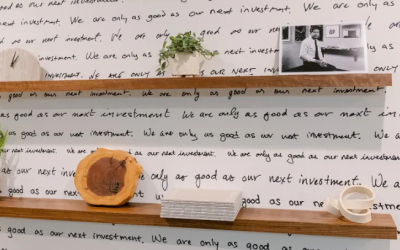 are only as good as our next investment. We are only as good as our
good as our next investment. We are only as good as our next inves
are only as good as our next investment. We are only as
investment. We are only as good We are
We are only as good as our next investment.
only as good as our next investment. We are only as good as our next investment.
as good as our next investment We are only as good as our next inves
as good as our next investment. We are only as good as our next investment. We
next investment. We are only as good as our next investment. We are only as good as our next investment.
as our next We are only as good as our next investment. We
good as our next investment. as our next
are only as good as our next investment. We are only as good as our